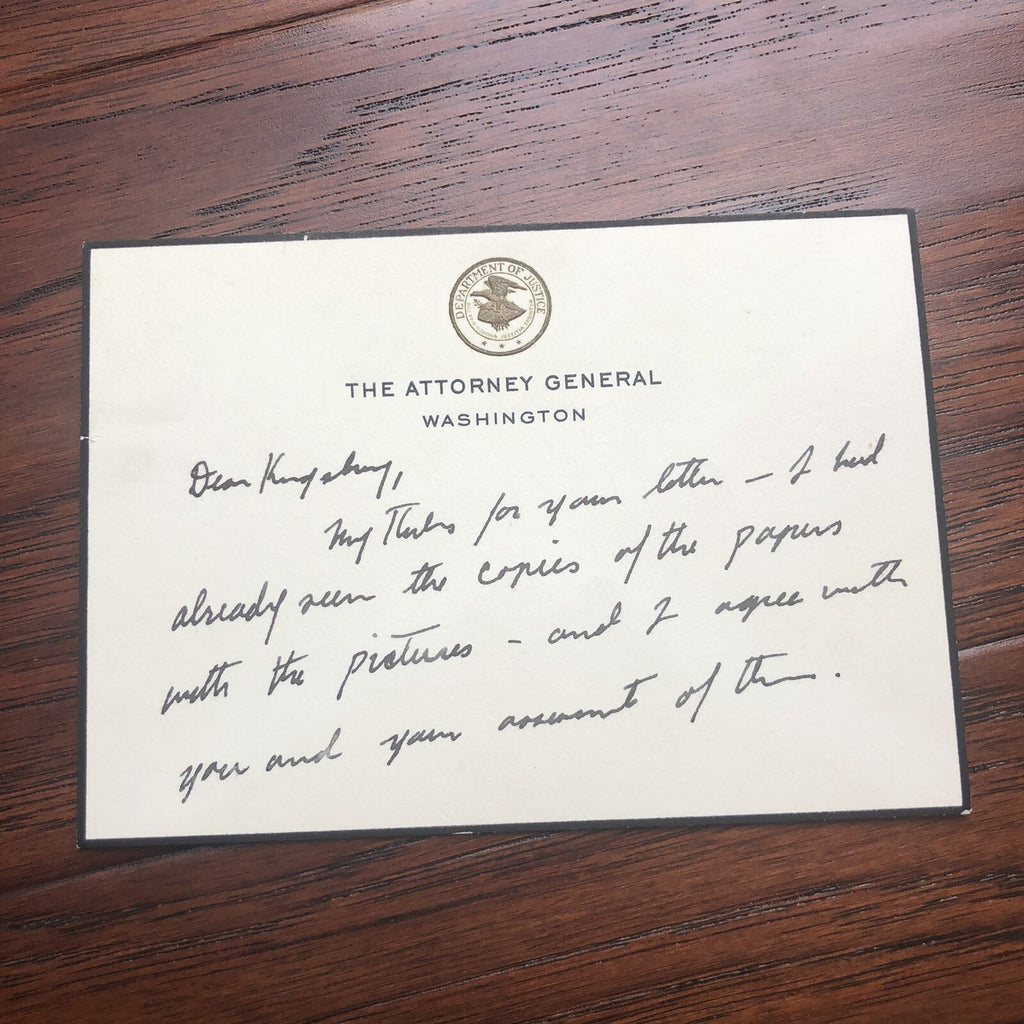 DEPARTMENT OF JUSTICE
THE ATTORNEY GENERAL
WASHINGTON
Dear Kingsbury,
My Thanks for your letter – I had
already seen the copies of the papers
with the pictures – and I agree with
you and your assessment of them.